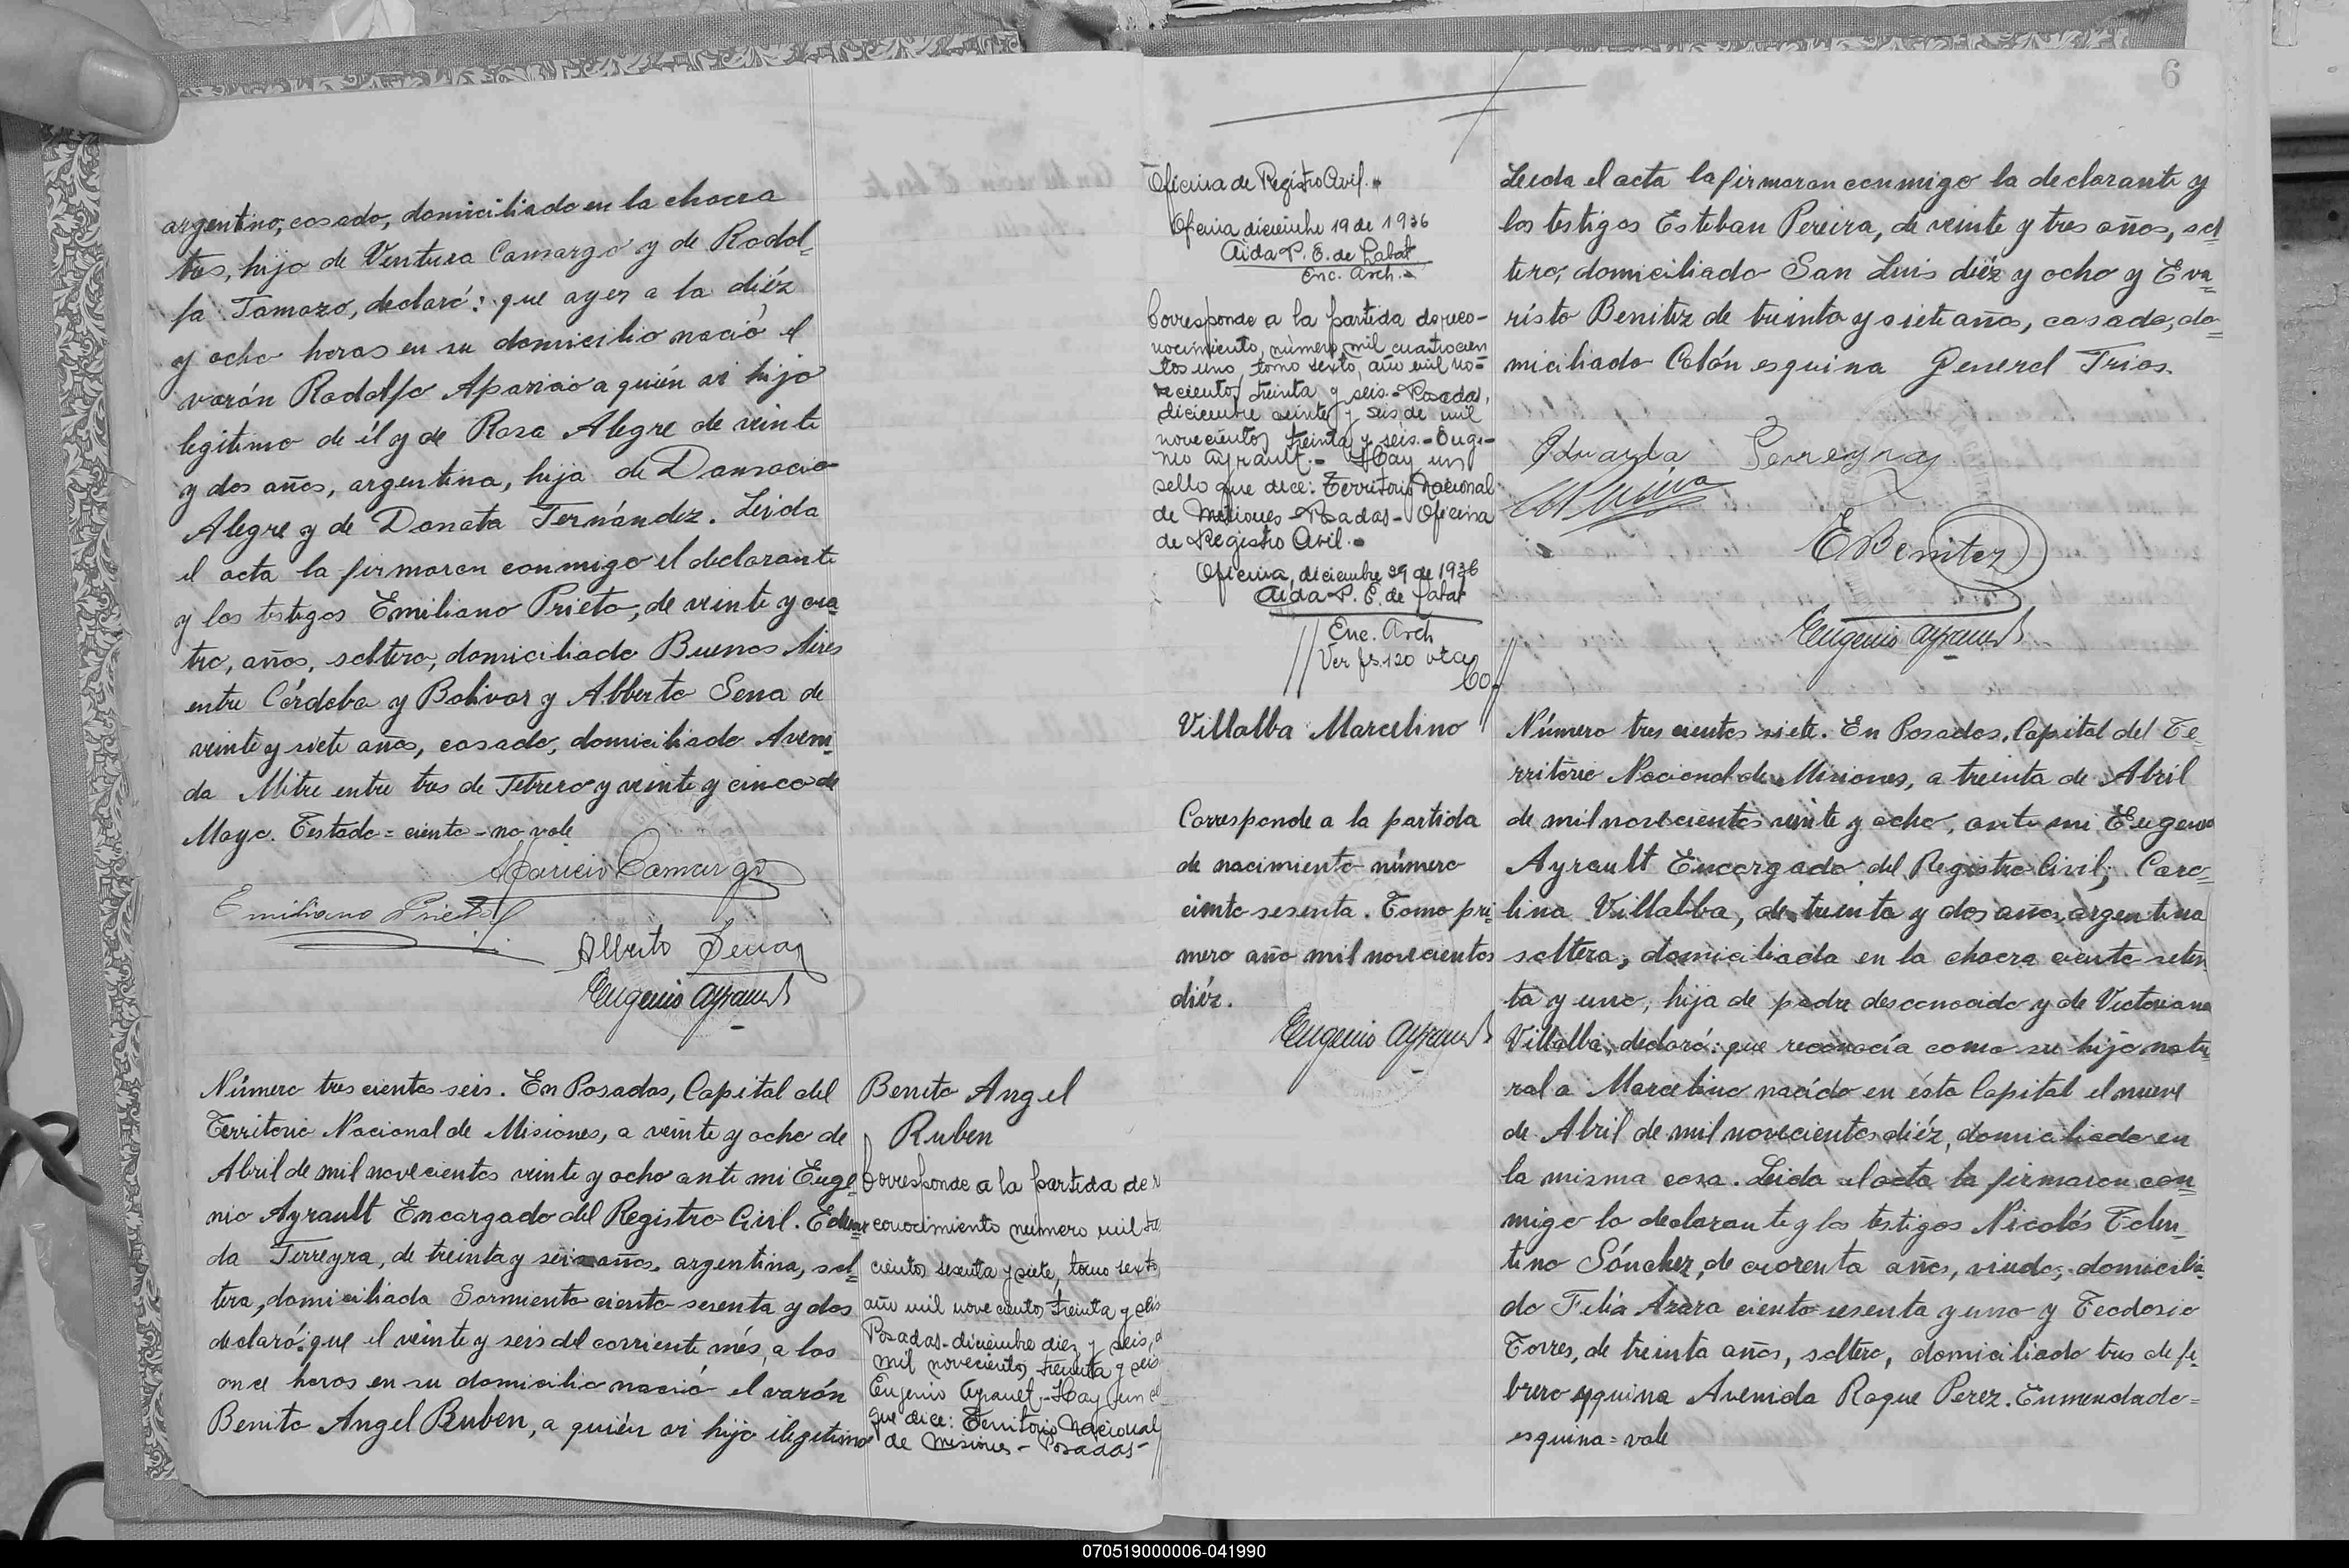 argentino, casado, domiciliado en la chacra
tres, hijo de Ventura Camargo y de Rodol-
fa Tamazo, declaró: que ayer a la diéz
y ocho horas en su domicilio nació el
varón Rodolfo Aparicio a quién vi hijo
legitimo de él y de Rosa Alegre de veinte
y dos años, argentina, hija de Damacio
Alegre y de Donata Fernández. Leida
el acta la firmaron conmigo el declarante
y los testigos Emiliano Prieto, de veinte y cua
tro, años, soltero, domiciliado Buenos Aires
entre Córdoba y Bolivar y Alberto Sena de
veinte y siete años, casado, domiciliado Aveni-
da Mitre entre tres de Febrero y veinte y cinco de
Mayo. Testado = ciento - no vale
Aparicio Camargo
Emiliano Prieto
Alberto Sena
Eugenio Ayrault
Número tres cientos seis. En Posadas, Capital del
Territorio Nacional de Misiones, a veinte y ocho de
Abril de mil novecientos veinte y ocho ante mi Euge-
nio Ayrault Encargado del Registro Civil. Eduar
da Ferreyra, de treinta y seis años, argentina, sol-
tera, domiciliada Sarmiento ciento sesenta y dos
declaró: que el veinte y seis del corriente més, a las
once horas en su domicilio nació el varón
Benito Angel Ruben, a quién vi hijo ilegitimo
Benito Angel
Ruben
Corresponde a la partida de r
conocimiento número mil tre
cientos sesenta y siete, tomo sexto,
año mil novecientos treinta y seis
Posadas - diciembre diez y seis, d
mil novecientos treinta y seis
Eugenio Ayrault. - Hay un
que dice: Territorio Nacional
de Misiones - Posadas -
6
Oficina de Registro Civil. -
Oficina diciembre 19 de 1936
Aida P. E. de Labat
Enc. Arch. -
Corresponde a la partida de reco-
nocimiento, número mil cuatrocien
tos uno, tomo sexto, año mil no-
vecientos treinta y seis - Posadas,
diciembre veinte y seis de mil
novecientos treinta y seis. - Euge-
nio Ayrault. - Hay un
sello que dice: Territorio Nacional
de Misiones - Posadas - Oficina
de Registro Civil. -
Oficina, diciembre 29 de 1936
Aida P. E. de Labat
Enc. Arch
Ver fs. 120 vta
Leida el acta la firmaron conmigo la declarante y
los testigos Esteban Pereira, de veinte y tres años, sol
tero, domiciliado San Luis diéz y ocho y Eva-
risto Benitez de treinta y siete años, casado, do-
miciliado Colón esquina General Frias.
Eduarda Ferreyra
E Pereira
E Benitez
Eugenio Ayrault
Villalba Marcelino
Corresponde a la partida
de nacimiento número
ciento sesenta. Tomo pri-
mero año mil novecientos
diéz.
Eugenio Ayrault
Número tres cientos siete. En Posadas, Capital del Te-
rritorio Nacional de Misiones, a treinta de Abril
de mil novecientos veinte y ocho, ante mi Eugenio
Ayrault Encargado del Registro Civil; Caro-
lina Villalba, de treinta y dos años, argentina
soltera, domiciliada en la chacra ciento seten
ta y uno, hija de padre desconocido y de Victoriana
Villalba, declaró: que reconocía como su hijo natu
ral a Marcelino nacido en ésta Capital el nueve
de Abril de mil novecientos diéz, domiciliado en
la misma casa. Leida el acta la firmaron con-
migo la declarante y los testigos Nicolás Tolen-
tino Sánchez, de cuarenta años, viudo, domicilia-
do Felix Azara ciento sesenta y uno y Teodosio
Torres, de treinta años, soltero, domiciliado tres de fe-
brero esquina Avenida Roque Perez. Enmendado =
esquina = vale
070519000006-041990